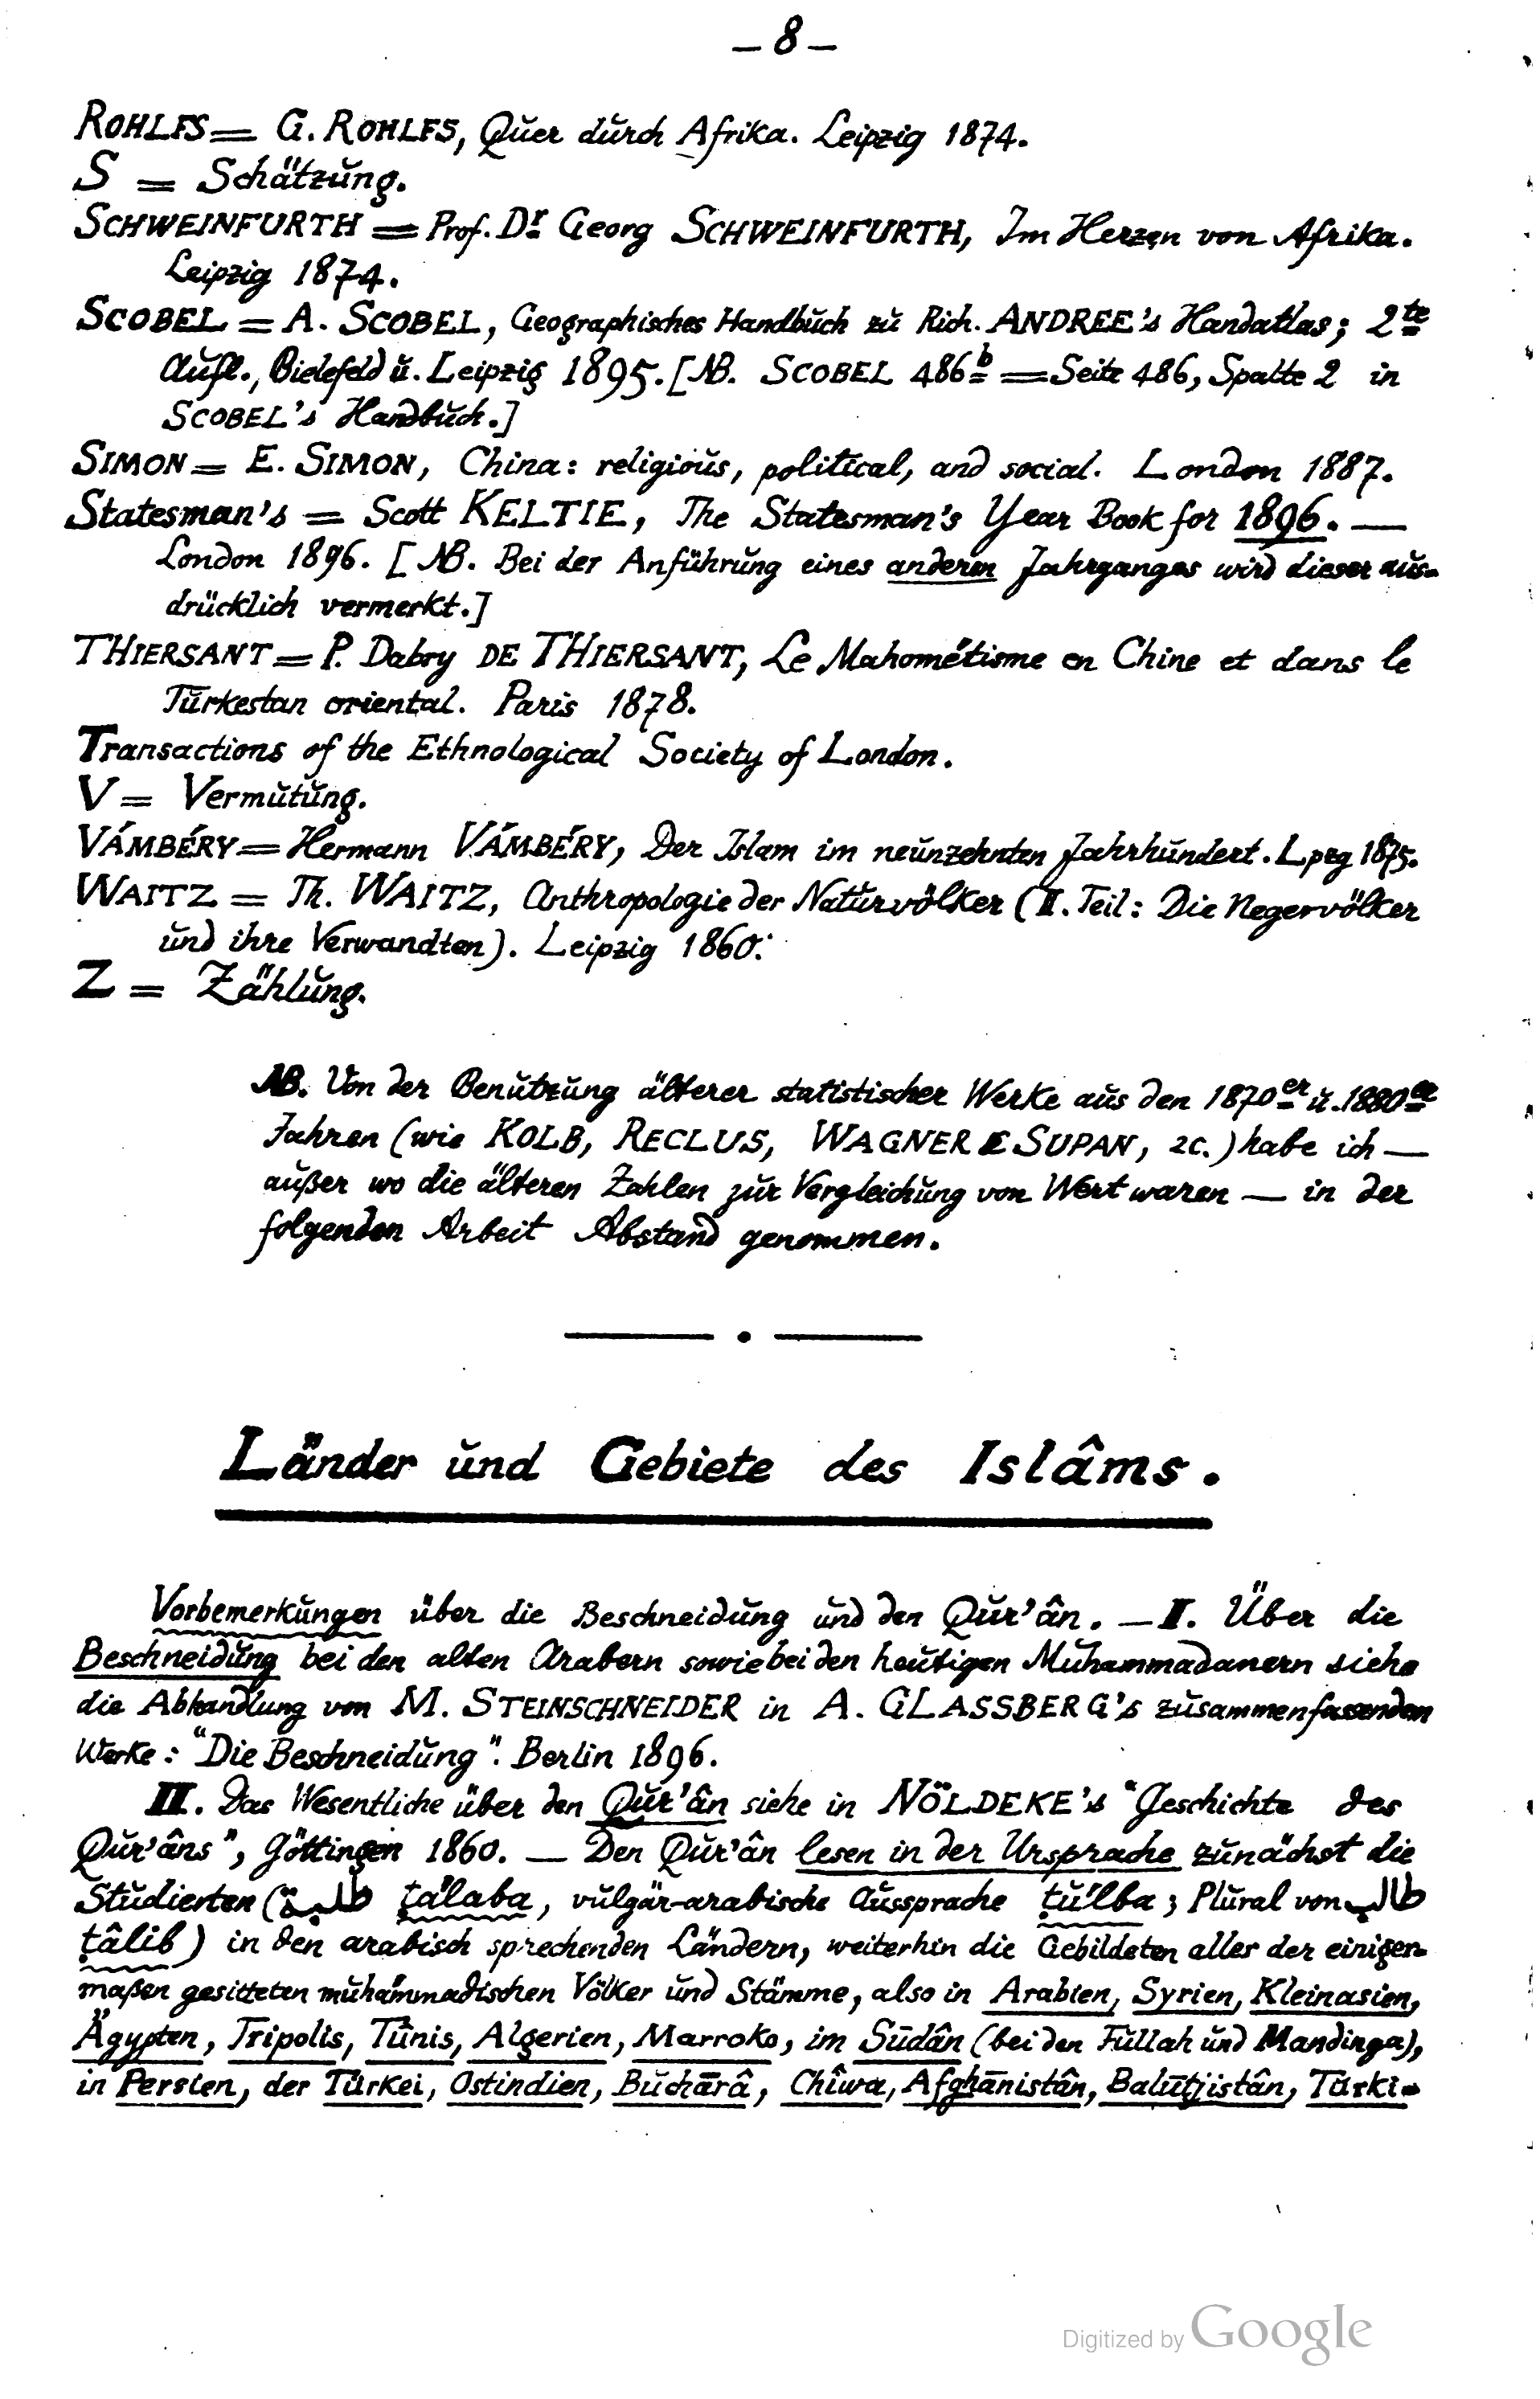 – 8 –
ROHLFS = G. ROHLFS, Quer durch Afrika. Leipzig 1874.
S = Schätzung.
SCHWEINFURTH = Prof. Dr Georg SCHWEINFURTH, Im Herzen von Afrika.
Leipzig 1874.
SCOBEL = A. SCOBEL, Geographisches Handbuch zu Rich. ANDREE's Handatlas; 2te
Aufl., Bielefeld u. Leipzig 1895. [NB. SCOBEL 486b = Seite 486, Spalte 2 in
SCOBEL's Handbuch.]
SIMON = E. SIMON, China: religious, political, and social. London 1887.
Statesman's = Scott KELTIE, The Statesman's Year Book for 1896. —
London 1896. [NB. Bei der Anführung eines anderen Jahrganges wird dieser aus-
drücklich vermerkt.]
THIERSANT = P. Dabry DE THIERSANT, Le Mahométisme en Chine et dans le
Turkestan oriental. Paris 1878.
Transactions of the Ethnological Society of London.
V = Vermutung.
VÁMBÉRY = Hermann VÁMBÉRY, Der Islam im neunzehnten Jahrhundert. Lpzg 1875.
WAITZ = Th. WAITZ, Anthropologie der Naturvölker (II. Teil: Die Negervölker
und ihre Verwandten). Leipzig 1860.
Z = Zählung.
NB. Von der Benutzung älterer statistischer Werke aus den 1870er u. 1880er
Jahren (wie KOLB, RECLUS, WAGNER & SUPAN, 2c.) habe ich —
außer wo die älteren Zahlen zur Vergleichung von Wert waren — in der
folgenden Arbeit Abstand genommen.
Länder und Gebiete des Islâms.
Vorbemerkungen über die Beschneidung und den Qur'ân. — I. Über die
Beschneidung bei den alten Arabern sowie bei den heutigen Muhammadanern siehe
die Abhandlung von M. STEINSCHNEIDER in A. GLASSBERG's zusammenfassenden
Werke: "Die Beschneidung". Berlin 1896.
II. Das Wesentliche über den Qur'ân siehe in NÖLDEKE's "Geschichte des
Qur'âns", Göttingen 1860. — Den Qur'ân lesen in der Ursprache zunächst die
Studierten (طلبة ṭálaba, vulgär-arabische Aussprache ṭúlba; Plural von طالب
ṭâlib) in den arabisch sprechenden Ländern, weiterhin die Gebildeten aller der einiger-
maßen gesitteten muhammadischen Völker und Stämme, also in Arabien, Syrien, Kleinasien,
Ägypten, Tripolis, Tûnis, Algerien, Marroko, im Sūdân (bei den Fullah und Mandinga),
in Persien, der Türkei, Ostindien, Buchārâ, Chîwa, Afghānistân, Balūtjistân, Turki-
Digitized by Google